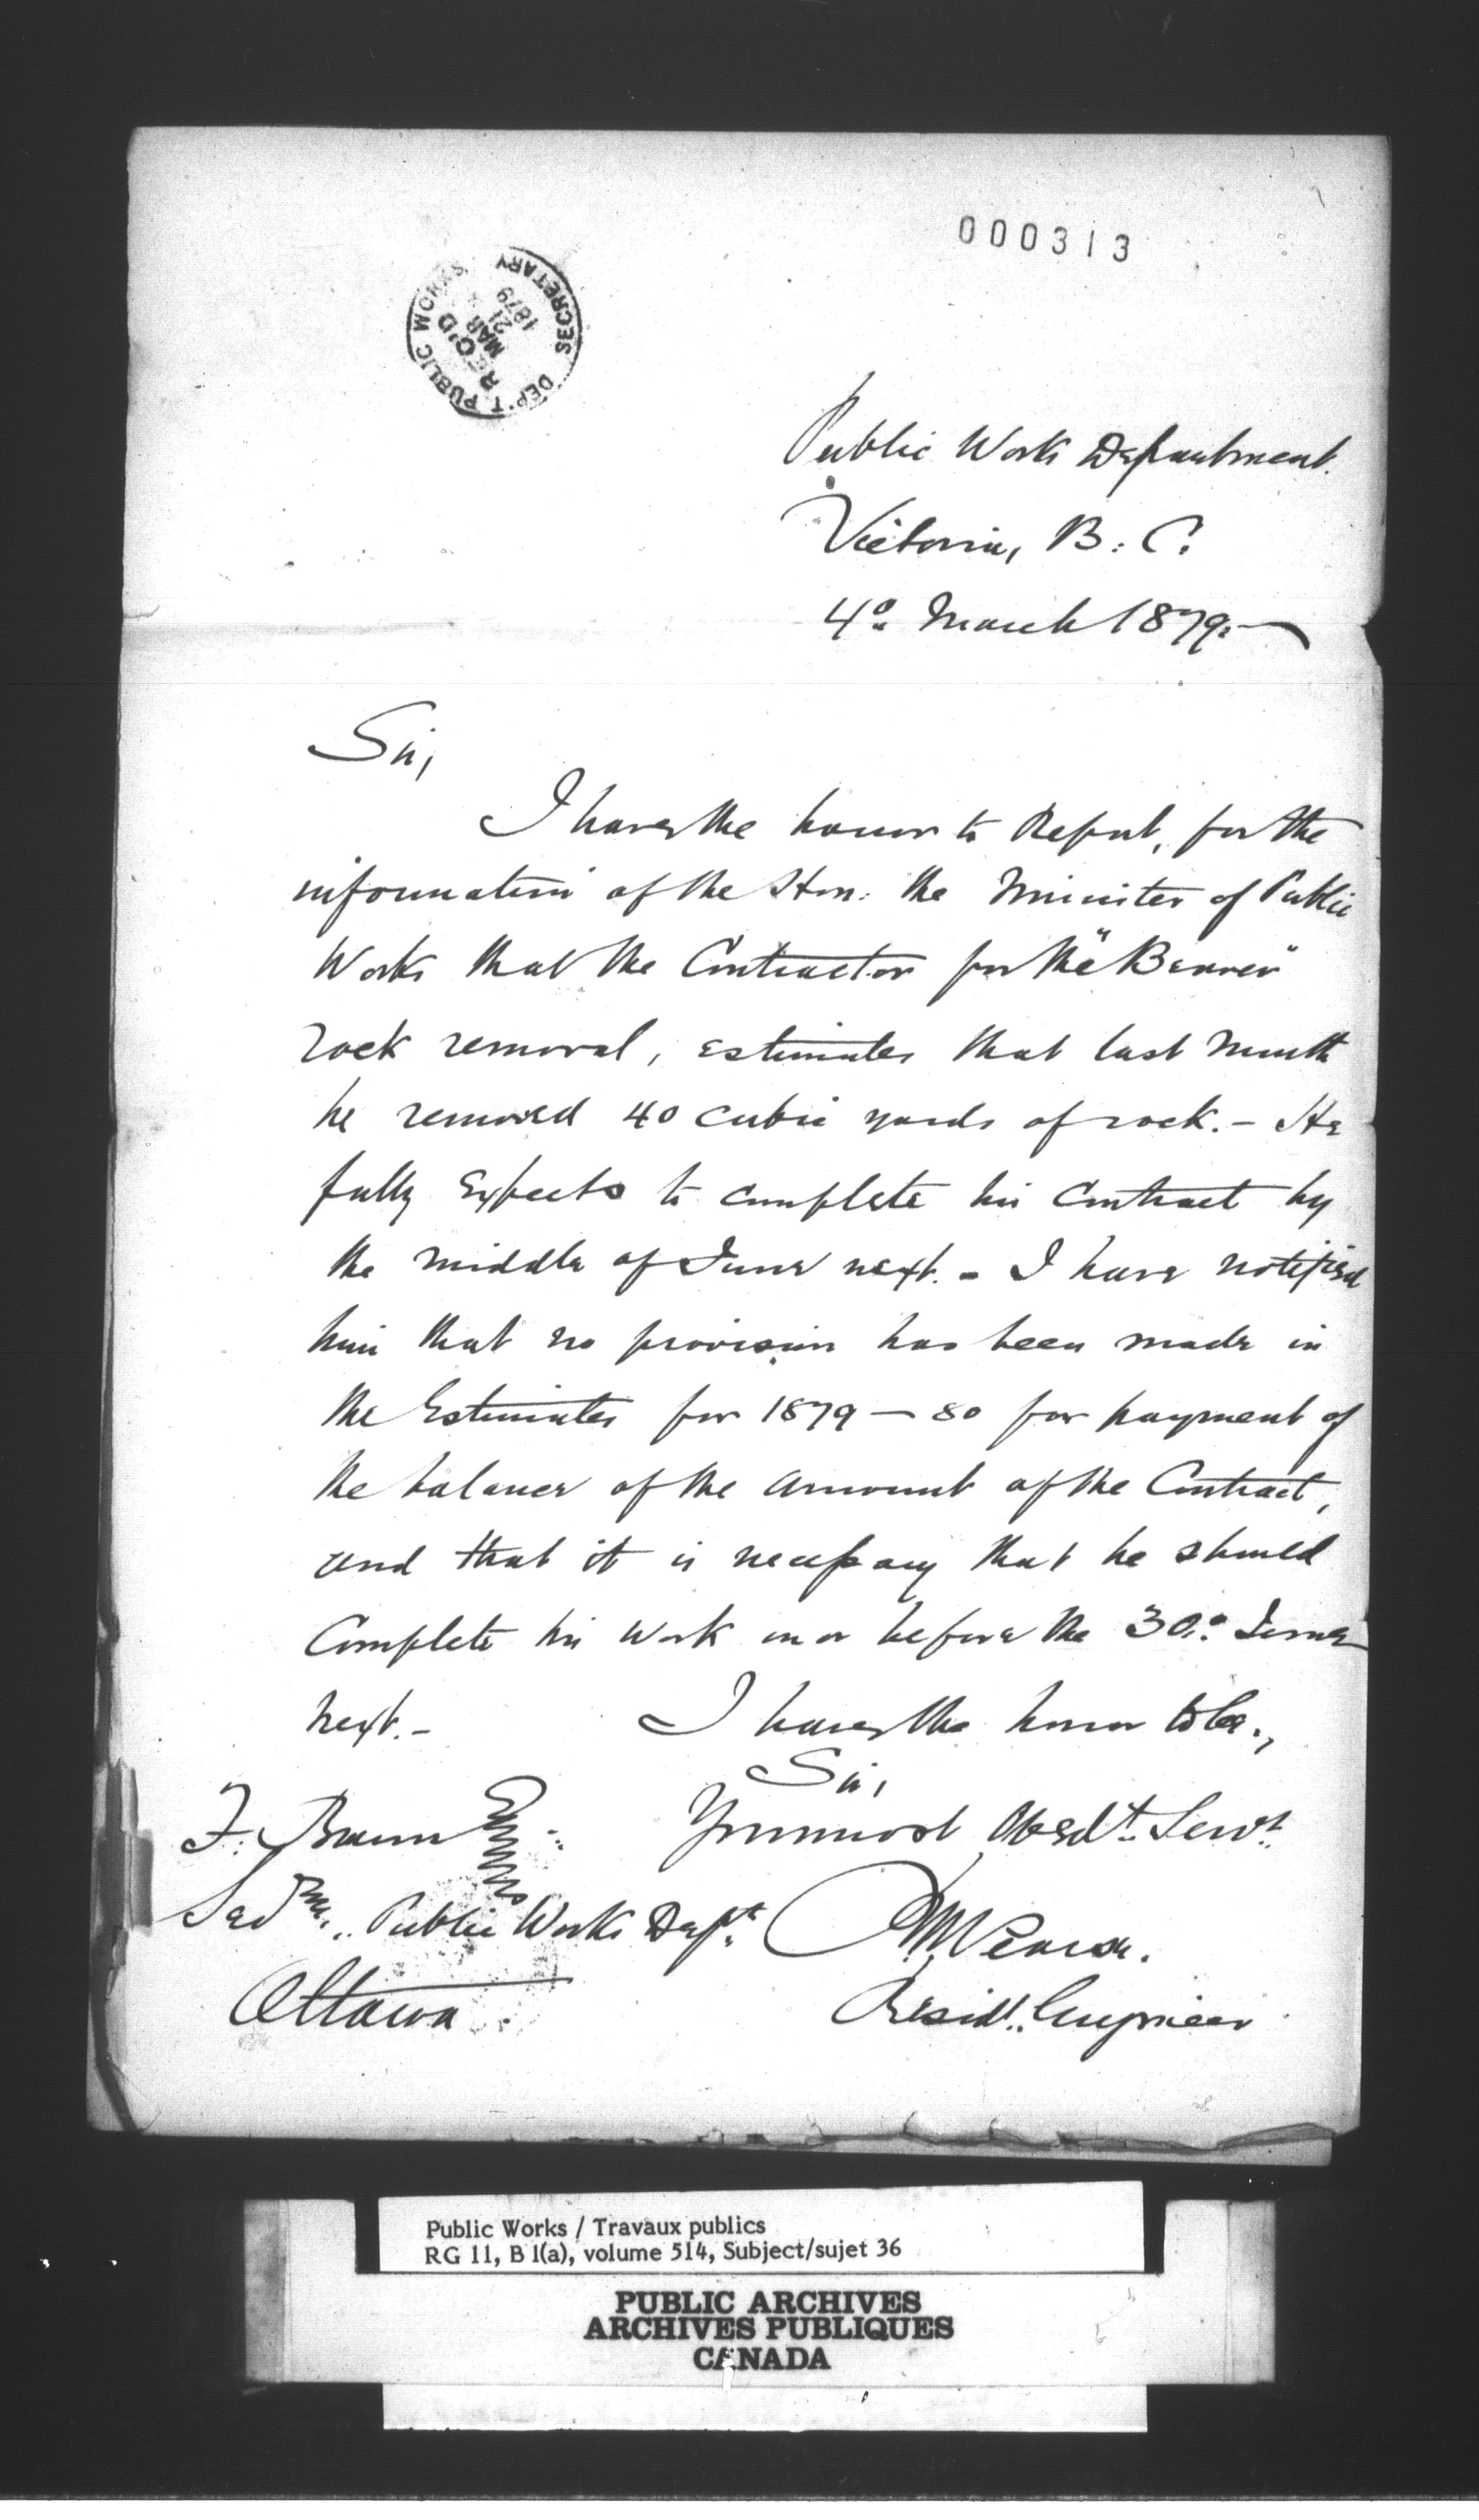 000313
DEP'T PUBLIC WORKS SECRETARY
REC'D
MAR 21
1879
Public Works Department.
Victoria, B. C.
4º March 1879.
Sir,
I have the honor to Report, for the
information of the Hon: the Minister of Public
Works that the Contractor for the "Beaver"
rock removal, estimates that last month
he removed 40 cubic yards of rock. - He
fully expects to complete his contract by
the middle of June next. - I have notified
him that no provision has been made in
the Estimates for 1879 - 80 for payment of
the balance of the amount of the Contract,
and that it is necessary that he should
Complete his work on or before the 30º June
next. - I have the honor to be.,
Sir,
F. Braun Yr. most Obedt. Servt.
Public Works Dept.
Ottawa
Residt. Engineer
Public Works / Travaux publics
RG 11, B 1(a), volume 514, Subject/sujet 36
PUBLIC ARCHIVES
ARCHIVES PUBLIQUES
CANADA